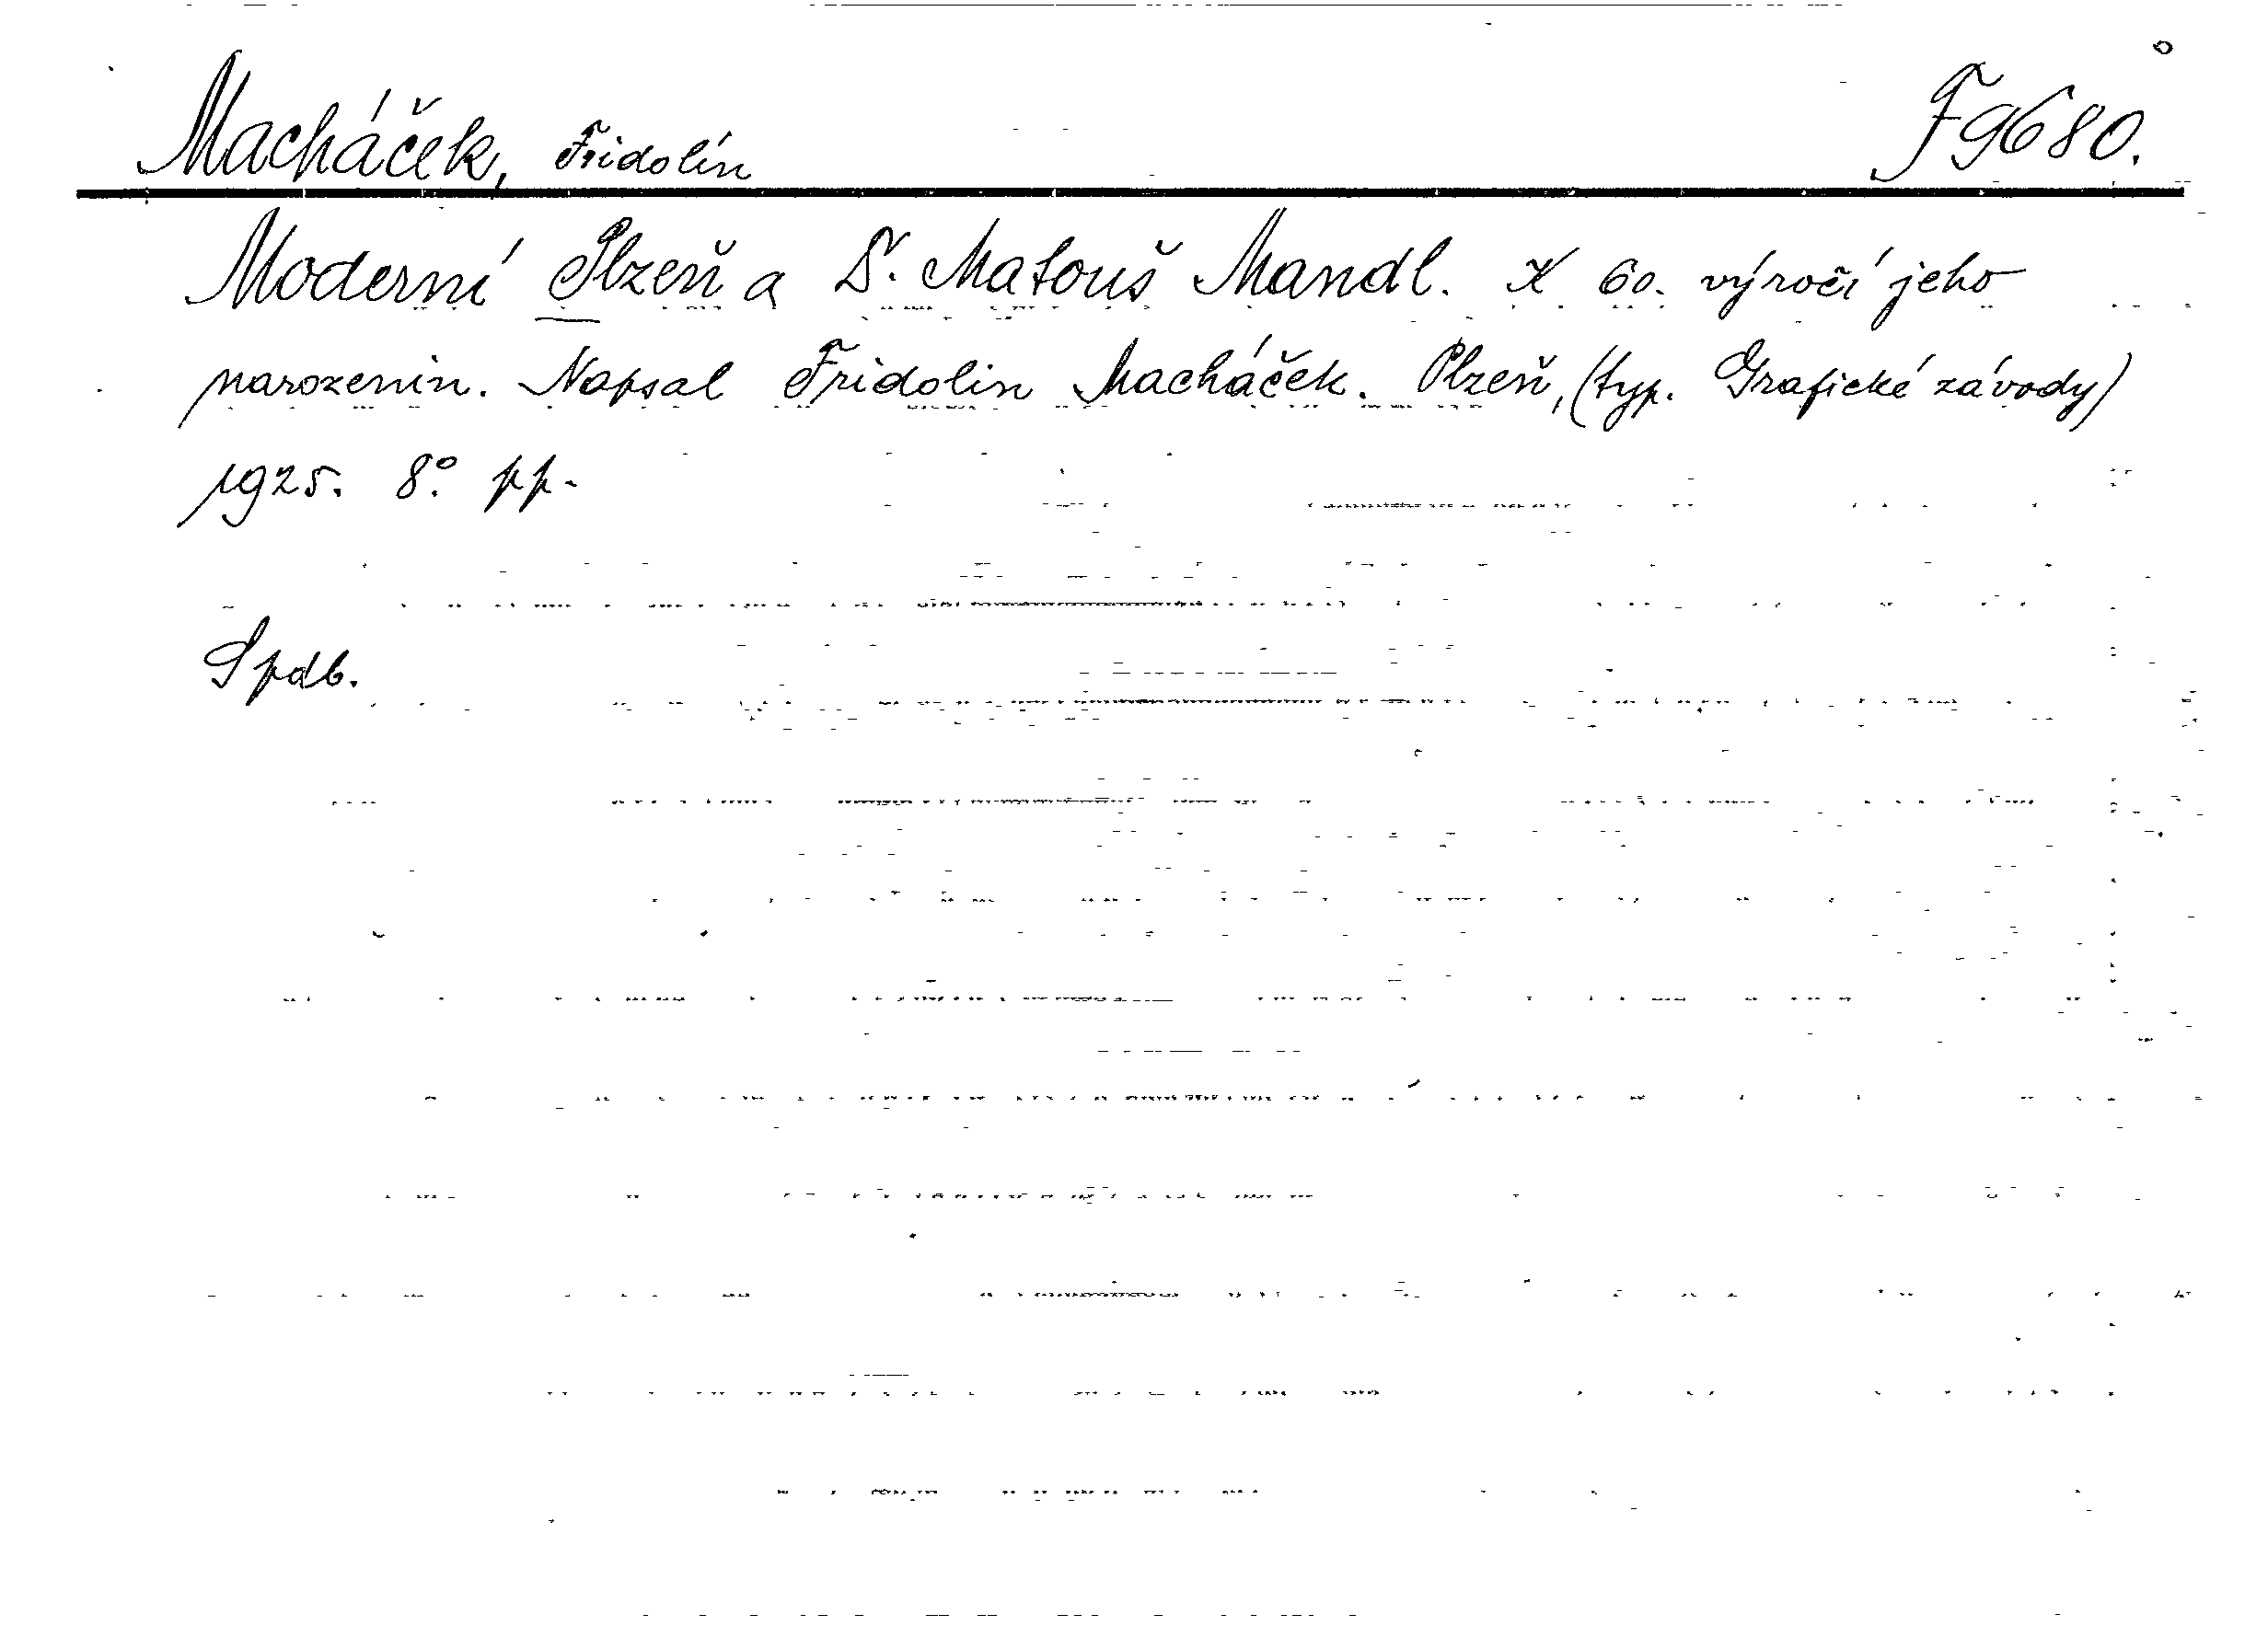 Macháček, Fridolín F 9680.
Moderní Plzeň a Dr. Matouš Mandl. K 60. výročí jeho
narozenin. Napsal Fridolin Macháček. Plzeň, (typ. Grafické závody)
1925. 8°. pp.
Spdb.